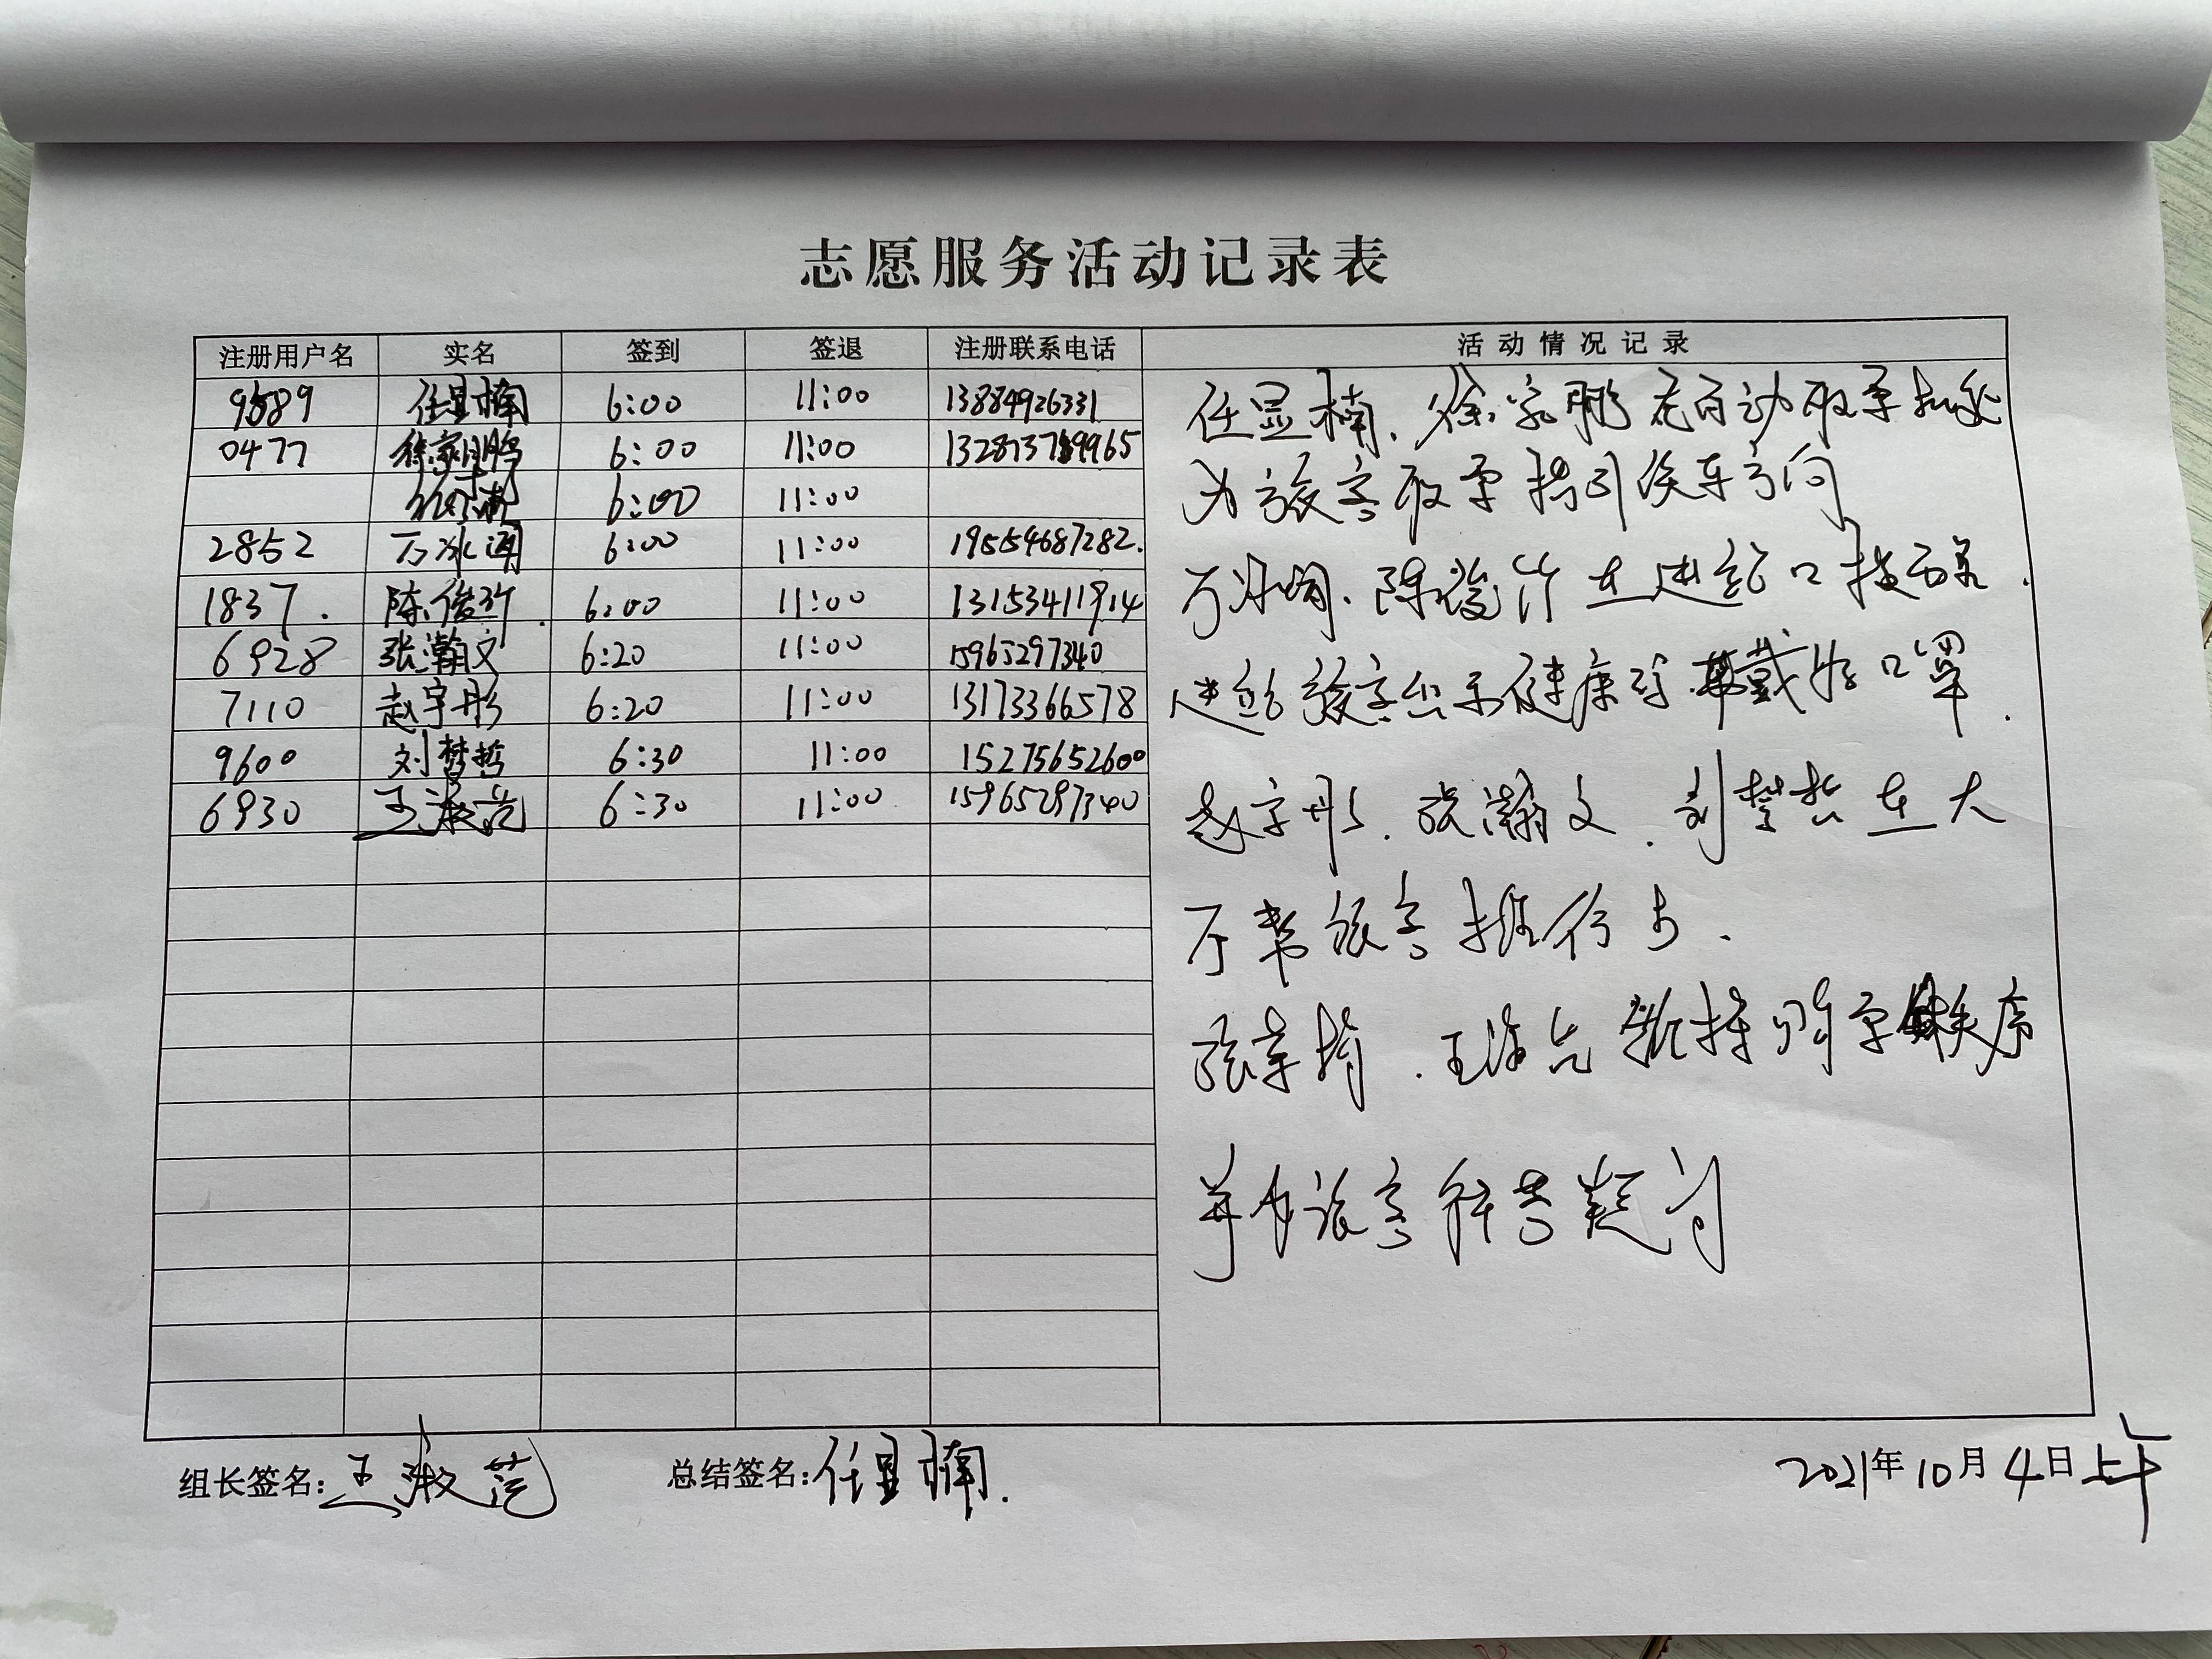 志愿服务活动记录表
注册用户名 实名 签到 签退 注册联系电话 活动情况记录
9589 任显楠 6:00 11:00 13884926331
0477 徐家鹏 6:00 11:00
6:00 11:00
2852 万冰洁 6:00 11:00 19554687282.
1837. 陈俊 6:00 11:00 13153411914
6928 张瀚文 6:20 11:00 15965297340
7110 赵宇彤 6:20 11:00 13173366578
9600 刘梦哲 6:30 11:00 15275652600
6930 王淑范 6:30 11:00 15965297340
任显楠、徐家鹏在自动取票机处
为旅客取票指引候车方向
万冰、陈俊 在进站口提醒
进站旅客出示健康码戴好口罩.
赵宇彤.张瀚文.刘梦哲在大
厅帮旅客推行李.
张 .王 维持 秩序
并为旅客解答疑问
组长签名:王淑范 总结签名:任显楠.
2021年10月4日上午